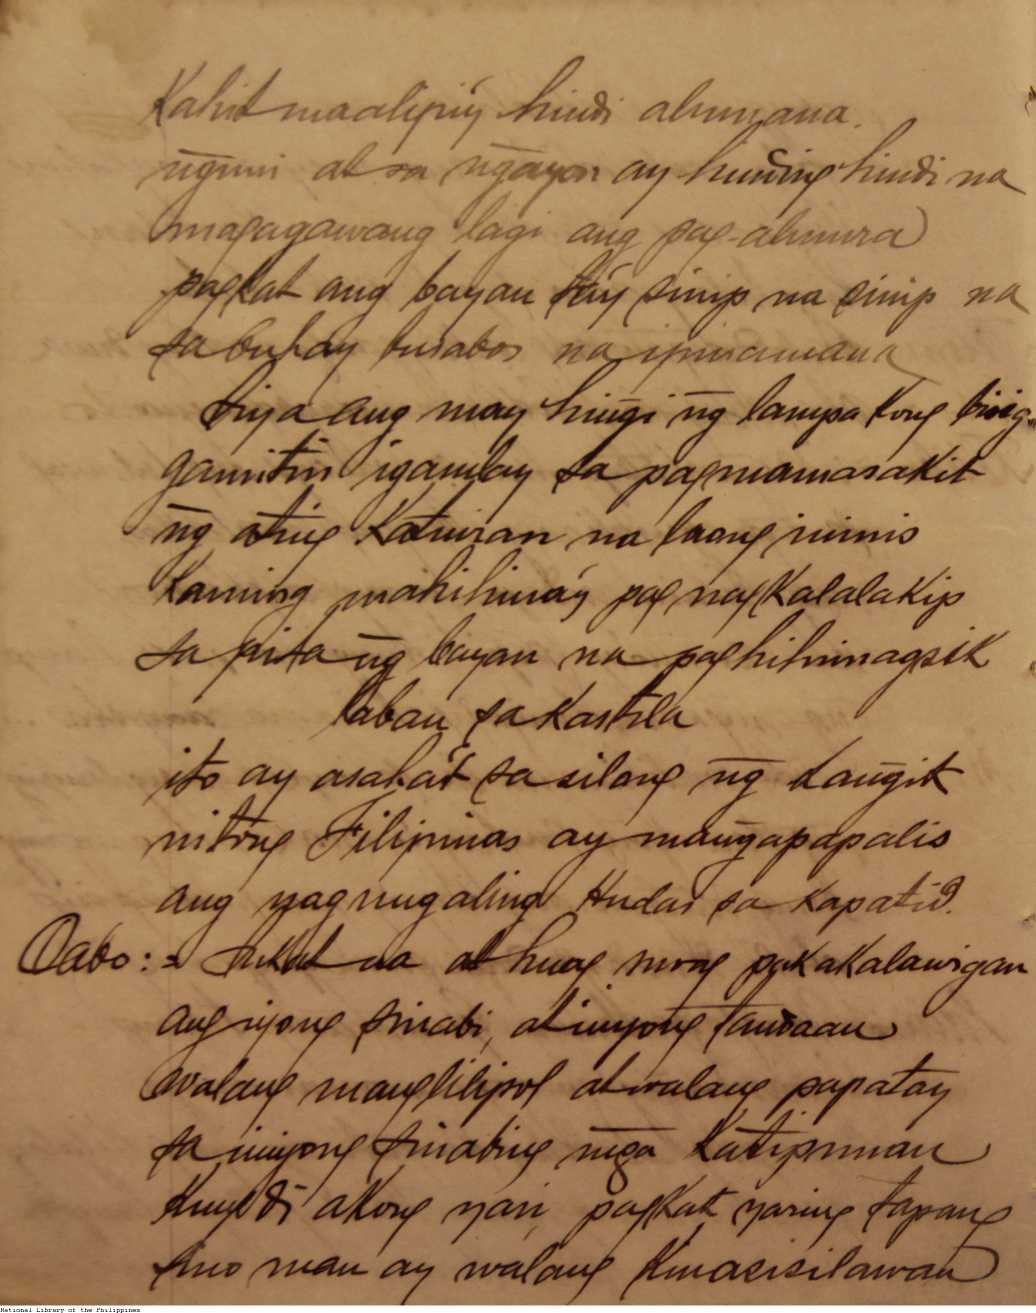 Kahit maalipin hindi alumana.
ñguni at sa ñgayon ay hinding hindi na
magagawang lagi ang pag-alumura
pagkat ang bayan tay sinip na sinip na
sa buhay busabos na ipinamana
Siya ang may hiñgi ñg lampa kong bisig
gamitin igamlay sa pagmamasakit
ñg ating Katwiran na laong inimis
kaming mahihinay pag nagkalalakip
sa pita ñg bayan na paghihimagsik
laban sa Kastila
ito ay asahát sa silong ñg Lañgit
nitong Filipinas ay mañgapapalis
ang nagnugaling Hudas sa kapatid.
Cabo: = Sukat na at huag mong pakakalawigan
ang iyong sinabi, at inyong tandaan
walang manglilipol at walang papatay
sa iniyong sinabing mga Katipunan
kungdi akong yari, pagkat yaring tapang
sino man ay walang kinasisilawan
National Library of the Philippines